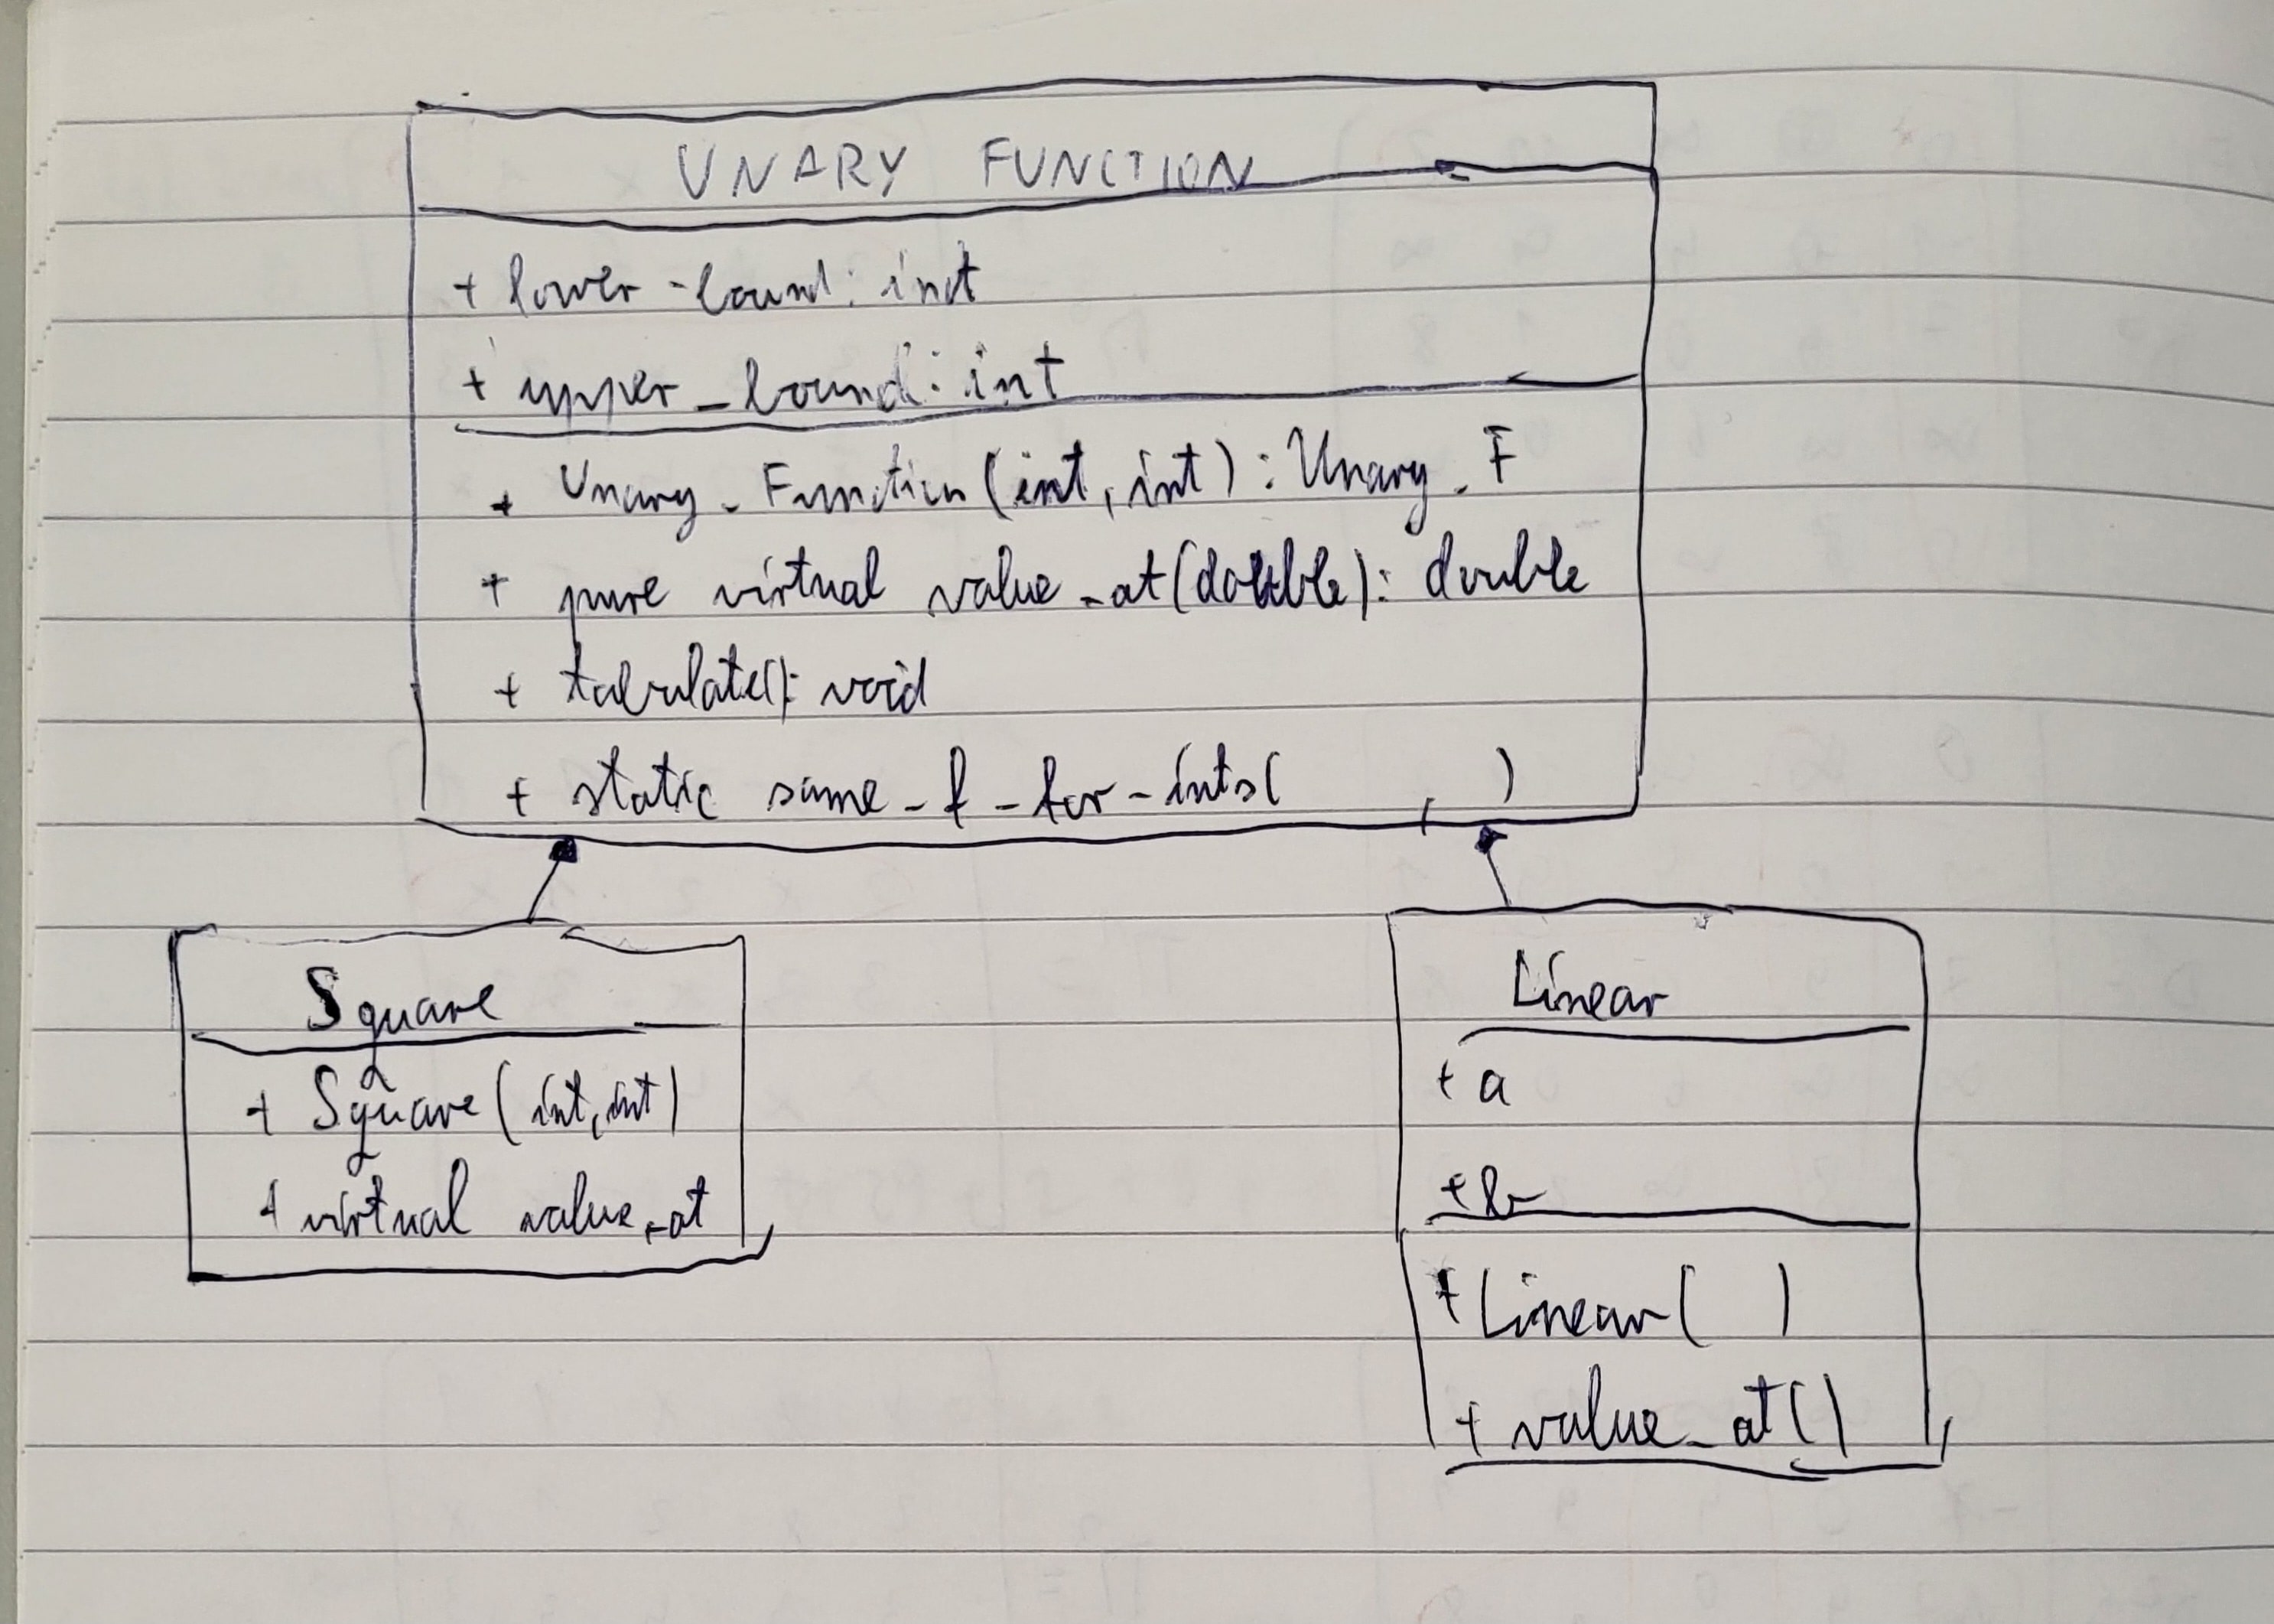 UNARY FUNCTION
+ lower-bound: int
+ upper_bound: int
+ Unary_Function(int, int): Unary_F
+ pure virtual value_at(double): double
+ tabulate(): void
+ static same-f-for-ints( , )
Square
+ Square(int, int)
+ virtual value_at
Linear
+ a
+ b
+ Linear( )
+ value_at()